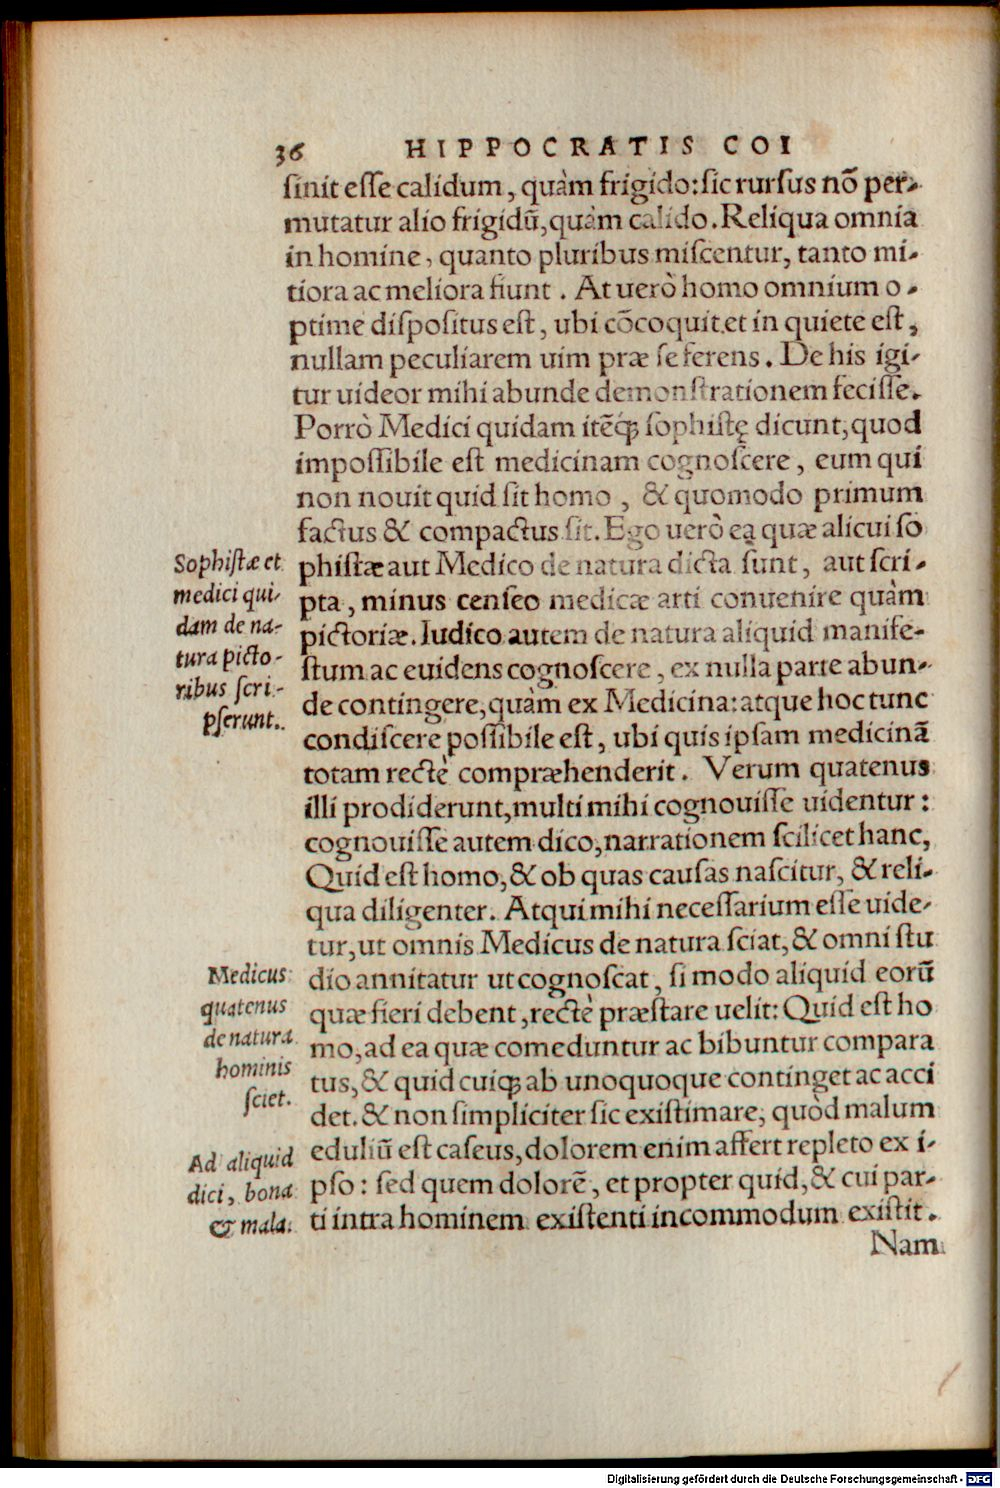 36 HIPPOCRATIS COI
sinit esse calidum, quàm frigido: sic rursus nõ per-
mutatur alio frigidũ, quàm calido. Reliqua omnia
in homine, quanto pluribus miscentur, tanto mi-
tiora ac meliora fiunt. At uerò homo omnium o-
ptime dispositus est, ubi cõcoquit et in quiete est,
nullam peculiarem uim præ se ferens. De his igi-
tur uideor mihi abunde demonstrationem fecisse.
Porrò Medici quidam itẽq́; sophistę dicunt, quod
impossibile est medicinam cognoscere, eum qui
non nouit quid sit homo, & quomodo primum
factus & compactus sit. Ego uerò ea quæ alicui so
phistæ aut Medico de natura dicta sunt, aut scri-
pta, minus censeo medicæ arti conuenire quàm
pictoriæ. Iudico autem de natura aliquid manife-
stum ac euidens cognoscere, ex nulla parte abun-
de contingere, quàm ex Medicina: atque hoc tunc
condiscere possibile est, ubi quis ipsam medicinã
totam rectè compræhenderit. Verum quatenus
illi prodiderunt, multi mihi cognouisse uidentur:
cognouisse autem dico, narrationem scilicet hanc,
Quid est homo, & ob quas causas nascitur, & reli-
qua diligenter. Atqui mihi necessarium esse uide-
tur, ut omnis Medicus de natura sciat, & omni stu
dio annitatur ut cognoscat, si modo aliquid eorũ
quæ fieri debent, rectè præstare uelit: Quid est ho
mo, ad ea quæ comeduntur ac bibuntur compara
tus, & quid cuiq; ab unoquoque continget ac acci
det. & non simpliciter sic existimare, quòd malum
eduliũ est caseus, dolorem enim affert repleto ex i-
pso: sed quem dolorẽ, et propter quid, & cui par-
ti intra hominem existenti incommodum existit.
Nam
Sophistæ et
medici qui-
dam de na-
tura picto-
ribus scri-
pserunt.
Medicus
quatenus
de natura
hominis
sciet.
Ad aliquid
dici, bona
& mala.
Digitalisierung gefördert durch die Deutsche Forschungsgemeinschaft - DFG